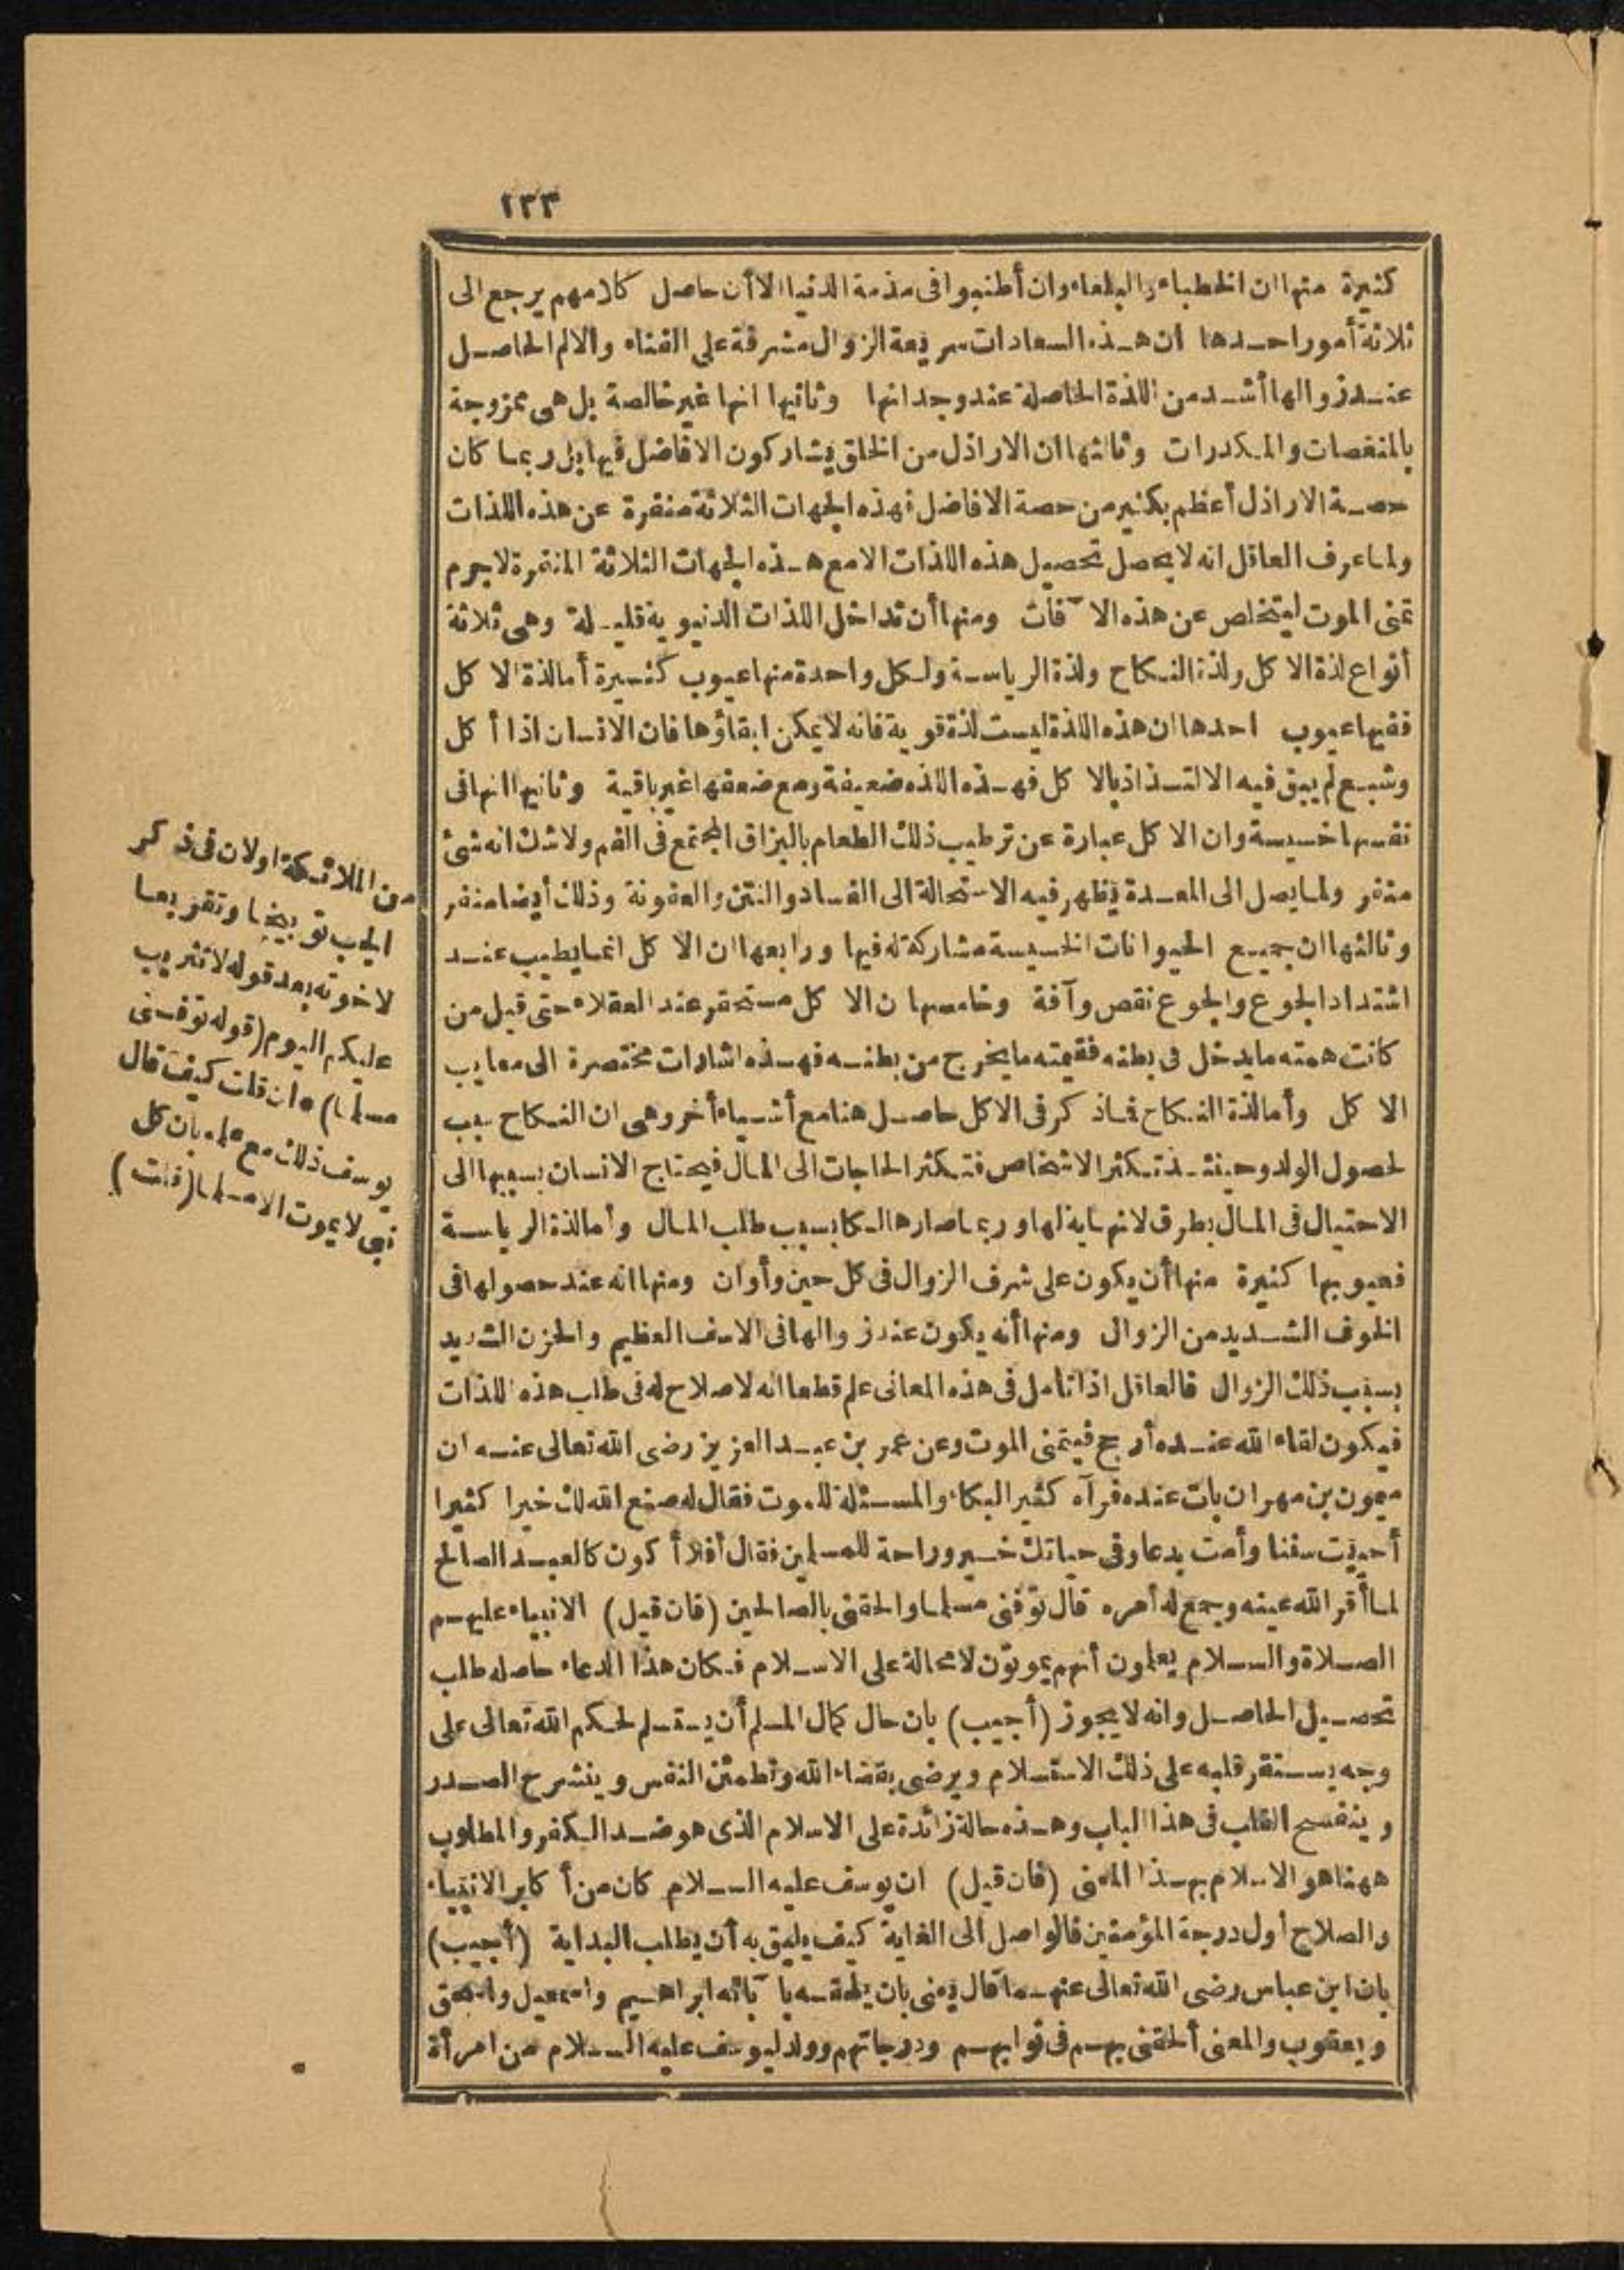 ١٣٣
كثيرة منها ان الخطباء والبلغاء وان أطنبوا فى مذمة الدنيا الا أن حاصل كلامهم يرجع الى
ثلاثة أمور احدها ان هذه السعادات سريعة الزوال مشرفة على الفناء والالم الحاصل
عند زوالها أشد من اللذة الحاصلة عند وجدانها وثانيها انها غير خالصة بل هى ممزوجة
بالمنغصات والمكدرات وثالثها ان الاراذل من الخلق يشاركون الافاضل فيها بل ربما كان
حصة الاراذل أعظم بكثير من حصة الافاضل فهذه الجهات الثلاثة منفرة عن هذه اللذات
ولما عرف العاقل انه لا يحصل تحصيل هذه اللذات الا مع هذه الجهات الثلاثة المنفرة لا جرم
تمنى الموت ليتخلص عن هذه الآفات ومنها أن تداخل اللذات الدنيوية قليلة وهى ثلاثة
أنواع لذة الاكل ولذة النكاح ولذة الرياسة ولكل واحدة منها عيوب كثيرة أما لذة الاكل
ففيها عيوب احدها ان هذه اللذة ليست لذة قوية فانه لا يمكن ابقاؤها فان الانسان اذا أكل
وشبع لم يبق فيه الالتذاذ بالاكل فهذه اللذه ضعيفة ومع ضعفها غير باقية وثانيها انها فى
نفسها خسيسة وان الاكل عبارة عن ترطيب ذلك الطعام بالبزاق المجتمع فى الفم ولا شك انه شئ
منفر ولما يصل الى المعدة يظهر فيه الاستحالة الى الفساد والنتن والعفونة وذلك أيضا منفر
وثالثها ان جميع الحيوانات الخسيسة مشاركة له فيها ورابعها ان الاكل انما يطيب عند
اشتداد الجوع والجوع نقص وآفة وخامسها ن الاكل مستحقر عند العقلاء حتى قيل من
كانت همته ما يدخل فى بطنه فقيمته ما يخرج من بطنه فهذه اشارات مختصرة الى معايب
الاكل وأما لذة النكاح فما ذكر فى الاكل حاصل هنا مع أشياء أخر وهى ان النكاح سبب
لحصول الولد وحينئذ تكثر الاشخاص فتكثر الحاجات الى المال فيحتاج الانسان بسببها الى
الاحتيال فى المال بطرق لا نهاية لها وربما صار هالكا بسبب طلب المال وأما لذة الرياسة
فعيوبها كثيرة منها أن يكون على شرف الزوال فى كل حين وأوان ومنها انه عند حصولها فى
الخوف الشديد من الزوال ومنها أنه يكون عند زوالها فى الاسف العظيم والحزن الشديد
بسبب ذلك الزوال فالعاقل اذا تأمل فى هذه المعانى علم قطعا انه لا صلاح له فى طلب هذه اللذات
فيكون لقاء الله عنده أرجح فيتمنى الموت وعن عمر بن عبد العزيز رضى الله تعالى عنه ان
ميمون بن مهران بات عنده فرآه كثير البكاء والمسئلة للموت فقال له صنع الله لك خيرا كثيرا
أحييت سننا وأمت بدعا وفى حياتك خير وراحة للمسلمين فقال أفلا أكون كالعبد الصالح
لما أقر الله عينه وجمع له أمره قال توفنى مسلما والحقنى بالصالحين (فان قيل) الانبياء عليهم
الصلاة والسلام يعلمون أنهم يموتون لا محالة على الاسلام فكان هذا الدعاء حاصله طلب
تحصيل الحاصل وانه لا يجوز (أجيب) بان حال كمال المسلم أن يستسلم لحكم الله تعالى على
وجه يستقر قلبه على ذلك الاستسلام ويرضى بقضاء الله وتطمئن النفس وينشرح الصدر
وينفسح القلب فى هذا الباب وهذه حالة زائدة على الاسلام الذى هو ضد الكفر والمطلوب
ههنا هو الاسلام بهذا المعنى (فان قيل) ان يوسف عليه السلام كان من أكابر الانبياء
والصلاح أول درجة المؤمنين فالواصل الى الغاية كيف يليق به أن يطلب البداية (أجيب)
بان ابن عباس رضى الله تعالى عنهما قال يعنى بان يلحقه بآبائه ابراهيم واسمعيل واسحق
ويعقوب والمعنى ألحقنى بهم فى ثوابهم ودرجاتهم وولد ليوسف عليه السلام من امرأة
من الملائكة اولان فى ذكر
الجب توبيخا وتقريعا
لاخوته بعد قوله لا تثريب
عليكم اليوم (قوله توفنى
مسلما) ه ان قلت كيف قال
يوسف ذلك مع علمه بان كل
نبى لا يموت الا مسلما (قلت)